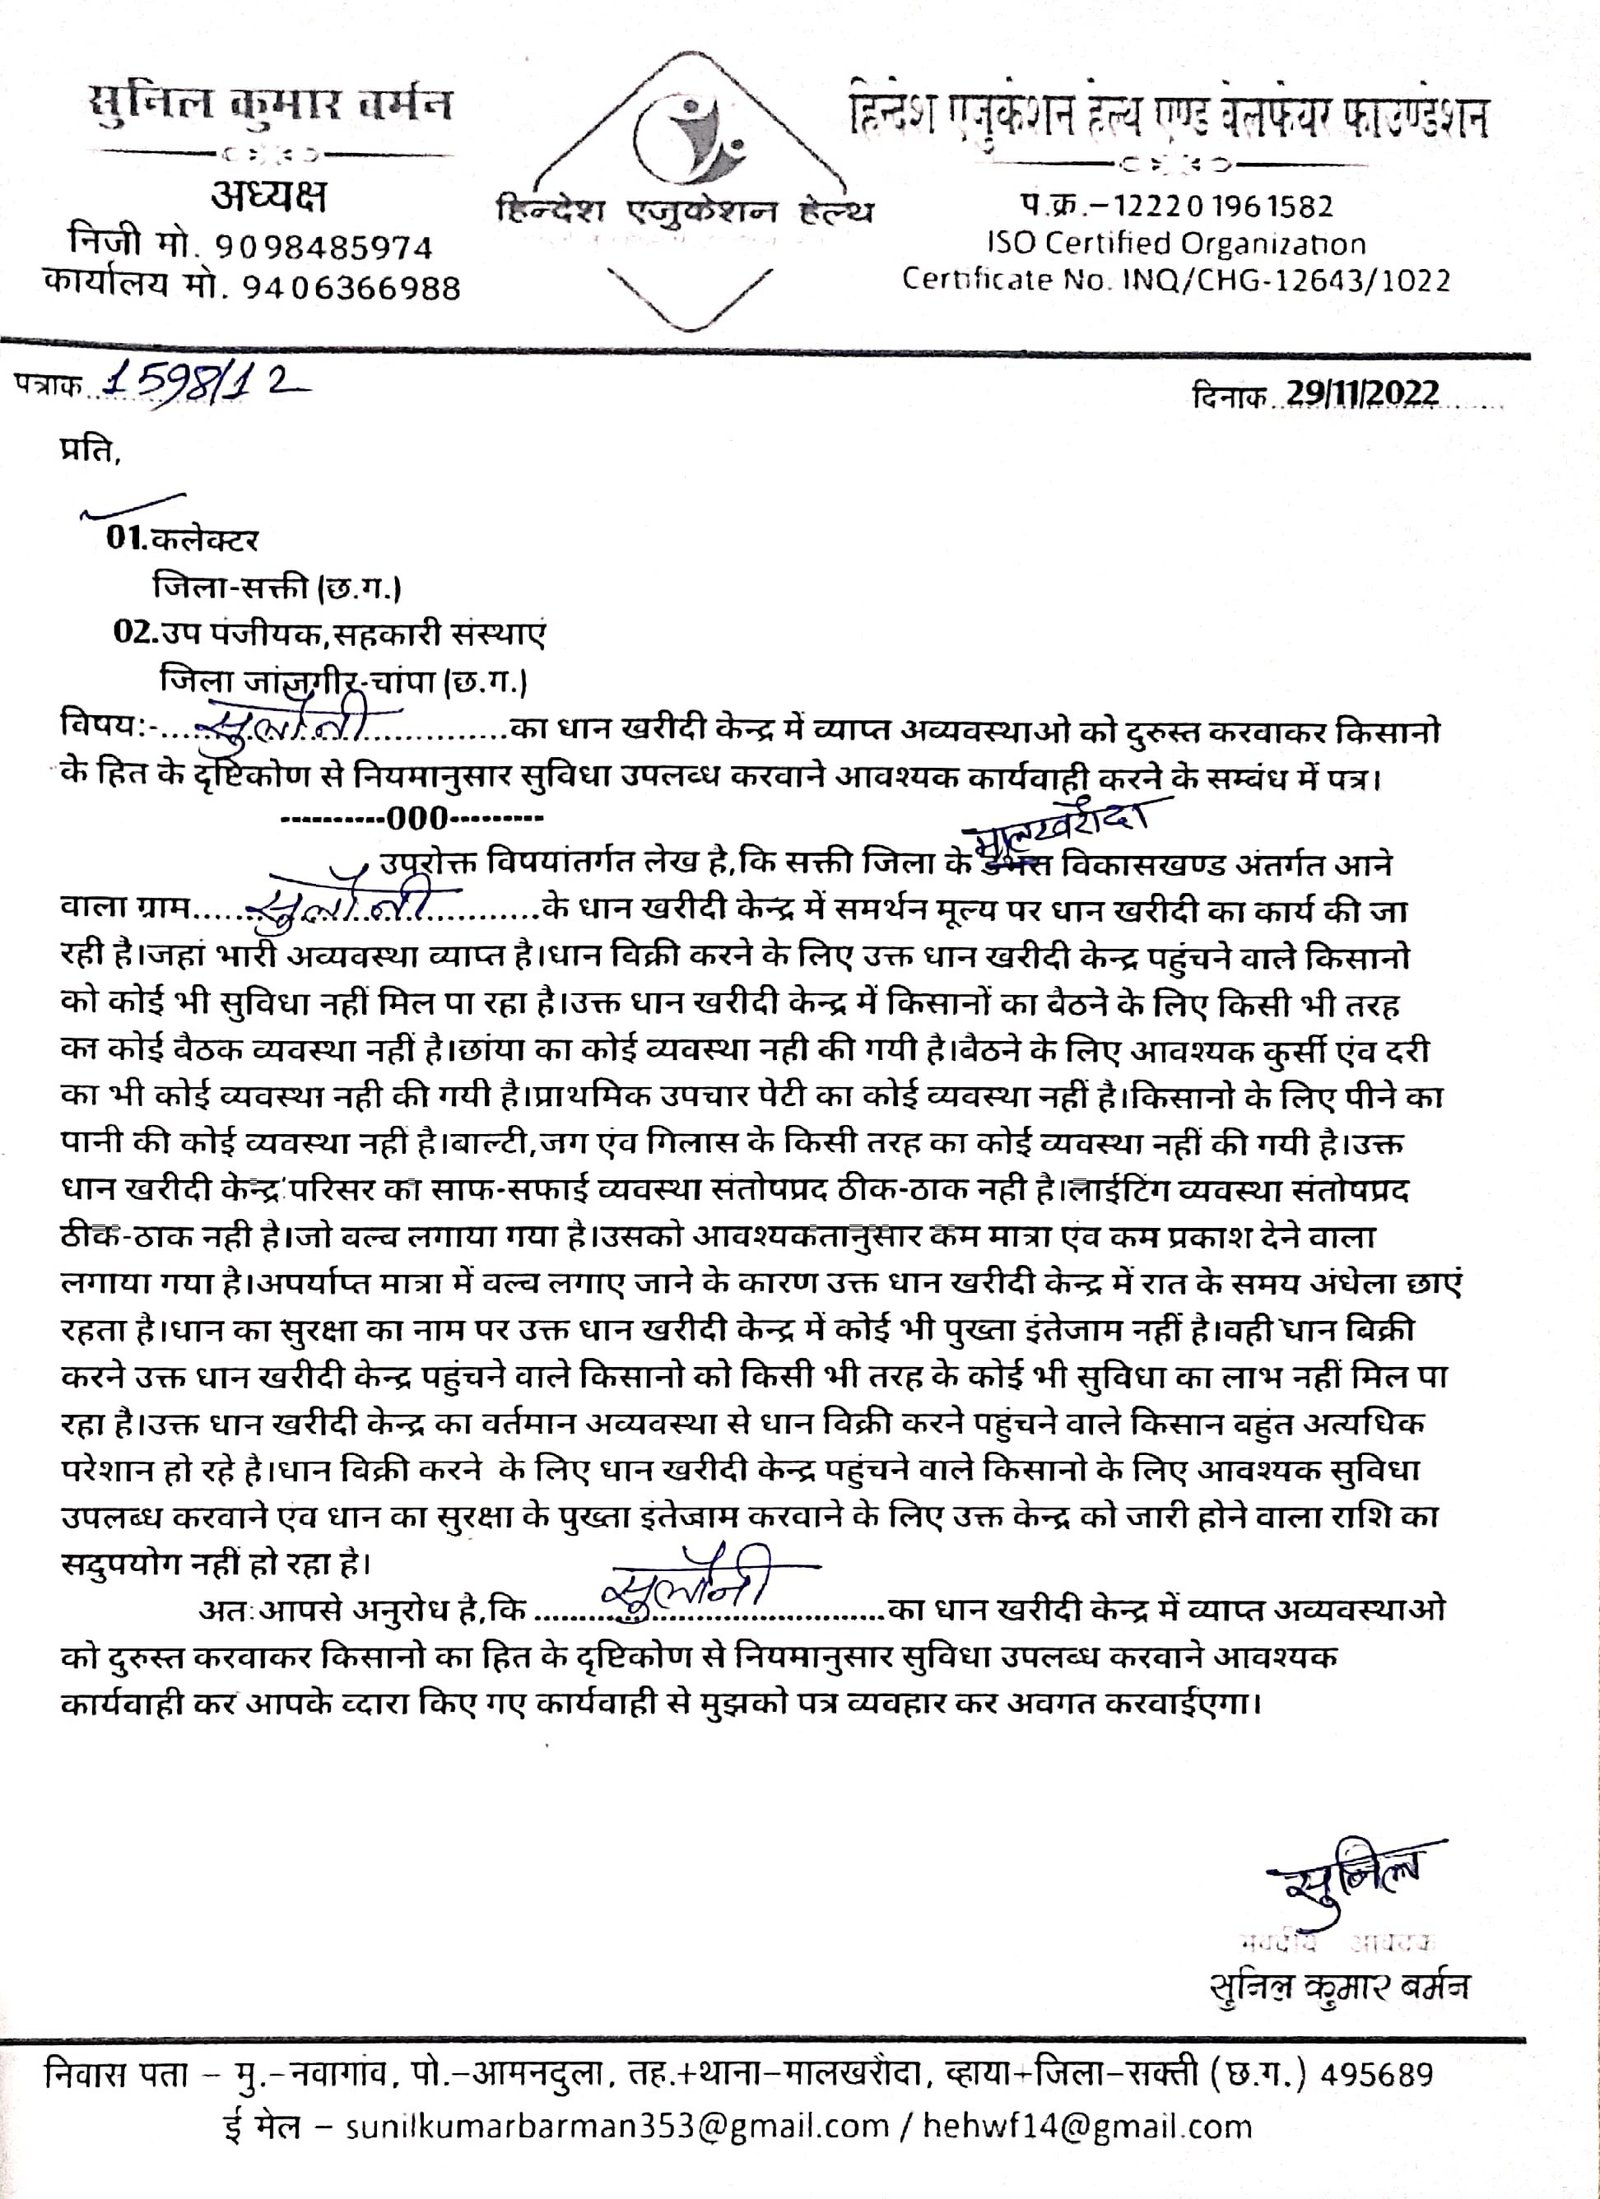 सुनिल कुमार बर्मन
अध्यक्ष
निजी मो. 9098485974
कार्यालय मो. 9406366988
हिन्देश एजुकेशन हेल्थ
हिन्देश एजुकेशन हेल्थ एण्ड वेलफेयर फाउण्डेशन
पं.क्र.–122201961582
ISO Certified Organization
Certificate No. INQ/CHG-12643/1022
पत्राक 1598/12
दिनाक 29/11/2022
प्रति,
01.कलेक्टर
जिला-सक्ती (छ.ग.)
02.उप पंजीयक,सहकारी संस्थाएं
जिला जांजगीर-चांपा (छ.ग.)
विषय:-.....सुलौनी.....का धान खरीदी केन्द्र में व्याप्त अव्यवस्थाओ को दुरुस्त करवाकर किसानो
के हित के दृष्टिकोण से नियमानुसार सुविधा उपलब्ध करवाने आवश्यक कार्यवाही करने के सम्बंध में पत्र।
----------000---------
मालखरौदा
उपरोक्त विषयांतर्गत लेख है,कि सक्ती जिला के विकासखण्ड अंतर्गत आने
वाला ग्राम.....सुलौनी.....के धान खरीदी केन्द्र में समर्थन मूल्य पर धान खरीदी का कार्य की जा
रही है।जहां भारी अव्यवस्था व्याप्त है।धान विक्री करने के लिए उक्त धान खरीदी केन्द्र पहुंचने वाले किसानो
को कोई भी सुविधा नहीं मिल पा रहा है।उक्त धान खरीदी केन्द्र में किसानों का बैठने के लिए किसी भी तरह
का कोई बैठक व्यवस्था नहीं है।छांया का कोई व्यवस्था नही की गयी है।बैठने के लिए आवश्यक कुर्सी एंव दरी
का भी कोई व्यवस्था नही की गयी है।प्राथमिक उपचार पेटी का कोई व्यवस्था नहीं है।किसानो के लिए पीने का
पानी की कोई व्यवस्था नहीं है।बाल्टी,जग एंव गिलास के किसी तरह का कोई व्यवस्था नहीं की गयी है।उक्त
धान खरीदी केन्द्र परिसर का साफ-सफाई व्यवस्था संतोषप्रद ठीक-ठाक नही है।लाईटिंग व्यवस्था संतोषप्रद
ठीक-ठाक नही है।जो वल्व लगाया गया है।उसको आवश्यकतानुसार कम मात्रा एंव कम प्रकाश देने वाला
लगाया गया है।अपर्याप्त मात्रा में वल्व लगाए जाने के कारण उक्त धान खरीदी केन्द्र में रात के समय अंधेला छाएं
रहता है।धान का सुरक्षा का नाम पर उक्त धान खरीदी केन्द्र में कोई भी पुख्ता इंतेजाम नहीं है।वही धान विक्री
करने उक्त धान खरीदी केन्द्र पहुंचने वाले किसानो को किसी भी तरह के कोई भी सुविधा का लाभ नहीं मिल पा
रहा है।उक्त धान खरीदी केन्द्र का वर्तमान अव्यवस्था से धान विक्री करने पहुंचने वाले किसान वहुंत अत्यधिक
परेशान हो रहे है।धान विक्री करने के लिए धान खरीदी केन्द्र पहुंचने वाले किसानो के लिए आवश्यक सुविधा
उपलब्ध करवाने एंव धान का सुरक्षा के पुख्ता इंतेजाम करवाने के लिए उक्त केन्द्र को जारी होने वाला राशि का
सदुपयोग नहीं हो रहा है।
अतःआपसे अनुरोध है,कि .....सुलौनी.....का धान खरीदी केन्द्र में व्याप्त अव्यवस्थाओ
को दुरुस्त करवाकर किसानो का हित के दृष्टिकोण से नियमानुसार सुविधा उपलब्ध करवाने आवश्यक
कार्यवाही कर आपके व्दारा किए गए कार्यवाही से मुझको पत्र व्यवहार कर अवगत करवाईएगा।
सुनिल
भवदीय आवेदक
सुनिल कुमार बर्मन
निवास पता – मु.–नवागांव, पो.–आमनदुला, तह.+थाना–मालखरौदा, व्हाया+जिला–सक्ती (छ.ग.) 495689
ई मेल – sunilkumarbarman353@gmail.com / hehwf14@gmail.com